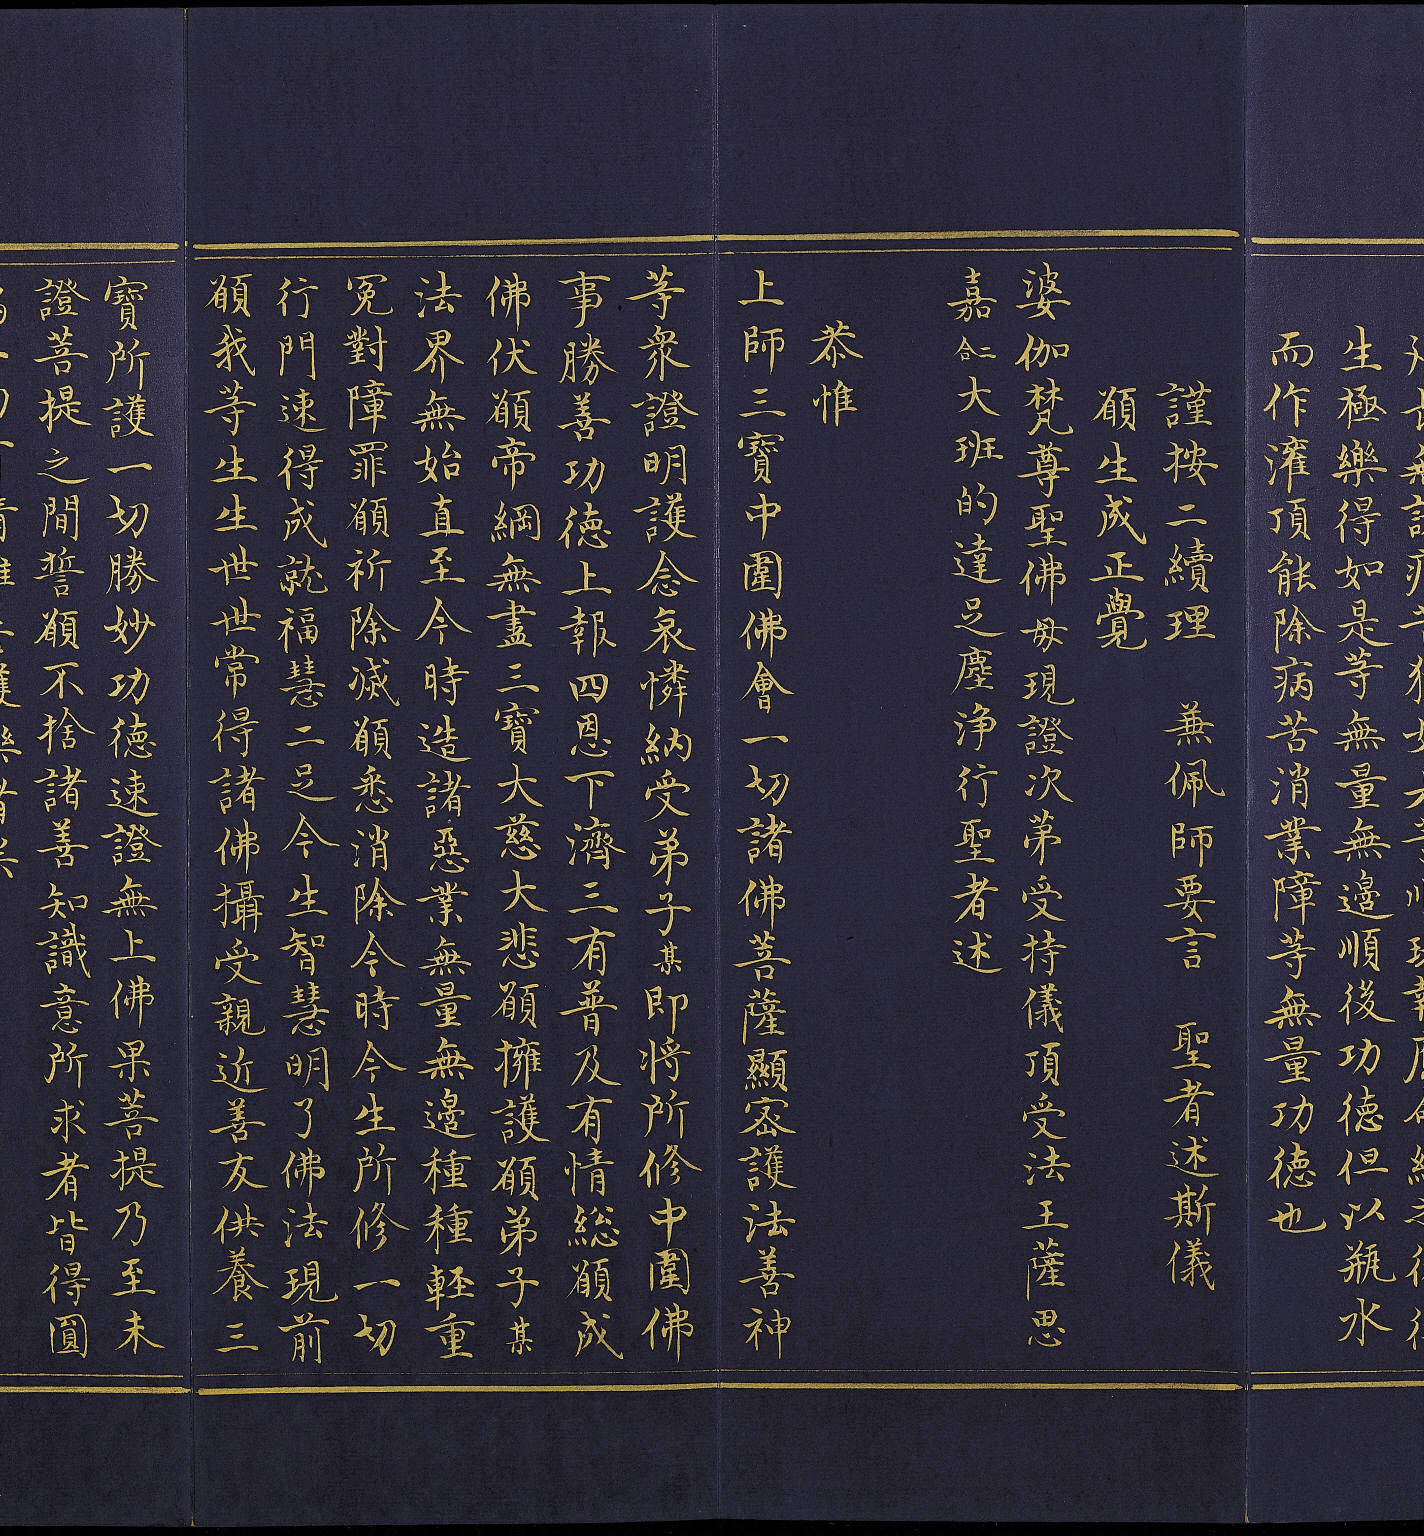 生極樂得如是等無量無邊順後功德但以瓶水
而作灌頂能除病苦消業障等無量功德也
謹按二續理　蕪佩師要言　聖者述斯儀
願生成正覺
婆伽梵尊聖佛母現證次第受持儀頂受法王薩思
嘉二合大班的達足塵淨行聖者述
恭惟
上師三寶中圍佛會一切諸佛菩薩顯密護法善神
等衆證明護念哀憐納受弟子某即將所修中圍佛
事勝善功德上報四恩下濟三有普及有情総願成
佛伏願帝網無盡三寶大慈大悲願擁護願弟子某
法界無始直至今時造諸惡業無量無邊種種輕重
冤對障罪願祈除滅願悉消除今時今生所修一切
行門速得成就福慧二足今生智慧明了佛法現前
願我等生生世世常得諸佛攝受親近善友供養三
寶所護一切勝妙功德速證無上佛果菩提乃至未
證菩提之間誓願不捨諸善知識意所求者皆得圓